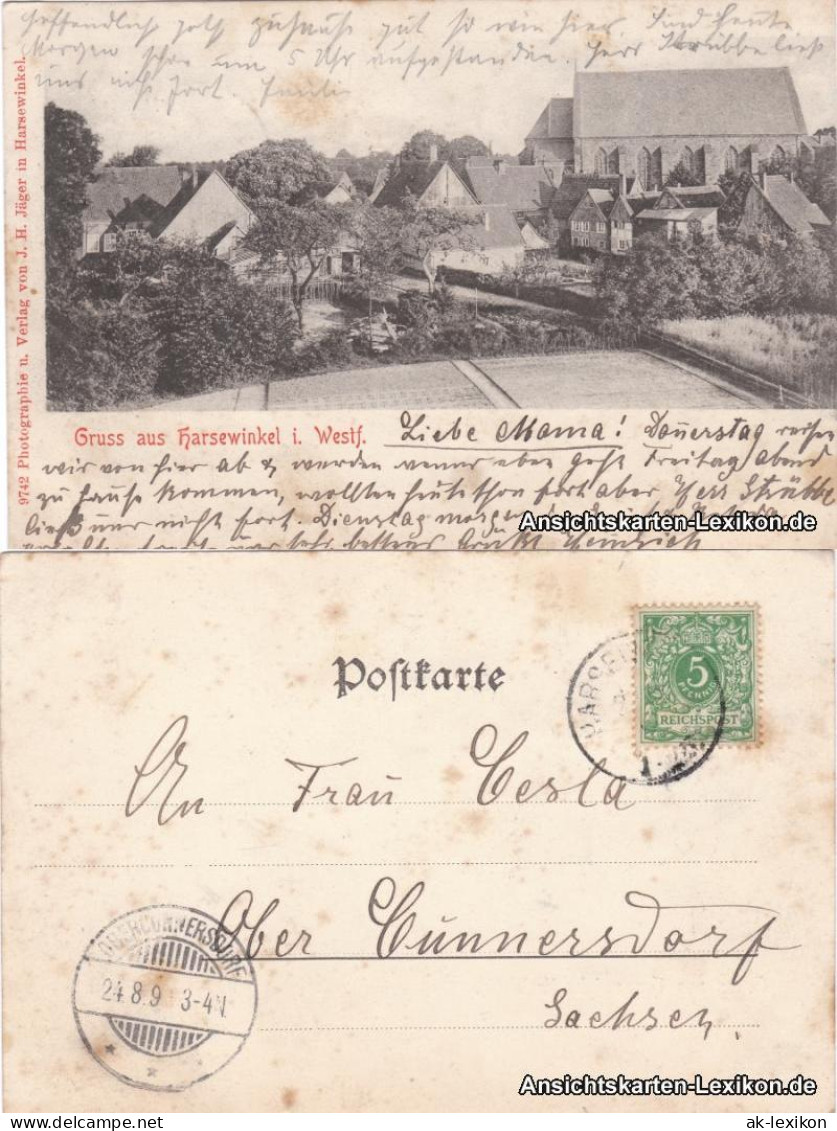 hoffendlich geth zuhause gut so wie hier. Sind heute
Morgen schon um 5 Uhr aufgestanden. Herr Strübbe ließ
uns nicht fort.
9742 Photographie u. Verlag von J. H. Jäger in Harsewinkel.
Gruss aus Harsewinkel i. Westf.
Liebe Mama! Donnerstag reisen
wir von hier ab & werden wenn eben geht Freitag abend
zu hause kommen, wollten heute schon fort aber Herr Strübbe
ließ uns nicht fort. Dienstag morgen
Grüßt Heinrich
Ansichtskarten-Lexikon.de
Postkarte
HARSEWINKEL
5
PFENNIG
REICHSPOST
An Frau Cesla
Ober Cunnersdorf
Sachsen
OBERCUNNERSDORF
24.8.9 3-4N
Ansichtskarten-Lexikon.de
ak-lexikon